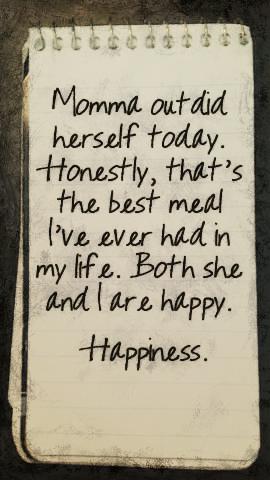 Momma outdid
herself today.
Honestly, that's
the best meal
I've ever had in
my life. Both she
and I are happy.
Happiness.